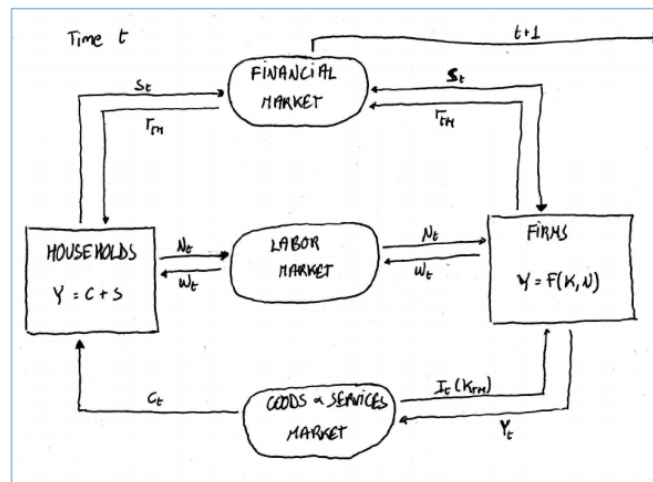 Time t
t+1
FINANCIAL
MARKET
St
St
rt+1
rt+1
HOUSEHOLDS
Y = C + S
Nt
Wt
LABOR
MARKET
Nt
Wt
FIRMS
Y = F(K,N)
Ct
GOODS & SERVICES
MARKET
It (Kt+1)
Yt